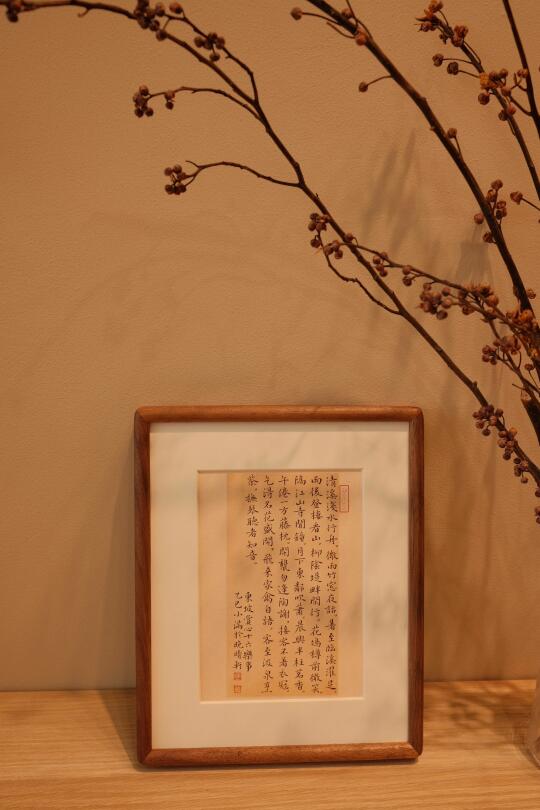 清溪淺水行舟。微雨竹窓夜話。暑至臨溪濯足。
雨後登樓看山。柳陰堤畔閒行。花塢樽前微笑。
隔江山寺聞鐘。月下東鄰吹簫。晨興半柱茗香。
午倦一方藤枕。開甕勿逢陶謝。接客不着衣冠。
乞得名花盛開。飛來家禽自語。客至汲泉烹
茶。撫琴聽者知音。
東坡賞心十六樂事
乙巳小滿於晚晴軒